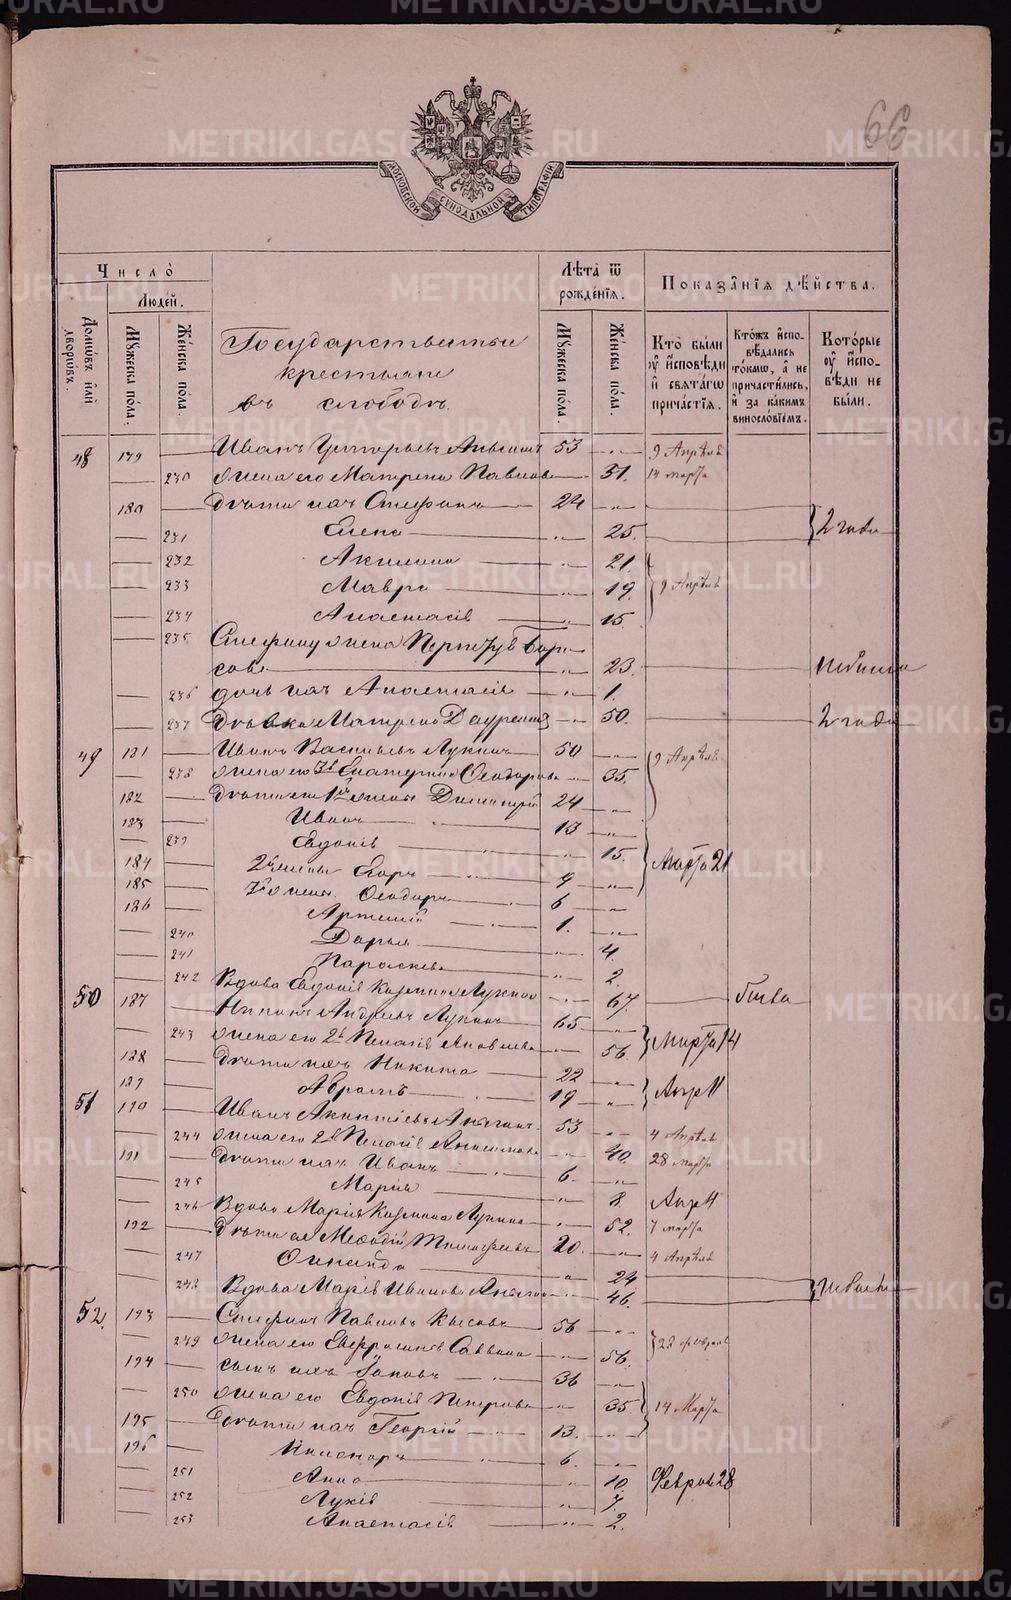 METRIKI.GASO-URAL.RU
66
МОСКОВСКОЙ СѴНОДАЛЬНОЙ ТИПОГРАФІИ
Число̀
Людей.
Домѡвъ или дворѡвъ.
Мꙋжеска пола.
Женска пола.
Лѣта ѿ рожденїѧ.
Мꙋжеска пола.
Женска пола.
Показанїѧ дѣйства.
Кто были оу исповѣди и свѧтагѡ причастїѧ.
Ктожъ исповѣдались токмѡ, а не причастились, и за какимъ винословїемъ.
Которые оу исповѣди не были.
Государственные
крестьяне
въ слободѣ.
48 179 Иванъ Григорьевъ 53 9 Апрѣля
230 жена его Матрена Павлова 51. 14 марта
180 дѣти ихъ Стефанъ 24
231 Елена 25. 2 года
232 Акилина 21.
233 Мавра 19. 9 Апрѣля
234 Анастасія 15.
235 Стефану жена Бори-
сова 23.
236 дочь ихъ Анастасія 1.
237 Вдова Матрена 50. 2 года
49 181 Иванъ Васильевъ Лукинъ 50 9 Апрѣля
238 жена его Екатерина Ѳеодорова 35.
182 дѣти его 1й жены Димитрій 24
183 Иванъ 13
239 Евдокія 15. Марта 21
184 2й жены Егоръ 9
185 жены Ѳеодоръ 6
186 Артемій 1.
240 Дарья 4.
241 Параскева 2.
242 Вдова Евдокія Лукина 67. была
50 187 Андреевъ Лукинъ 65
243 жена его 2я Пелагія Яковлева 56 Марта 14
188 дѣти ихъ Никита 22
189 Абрамъ 19 Апр 11
51 190 Иванъ 53 4 Апрѣля
244 жена его 2я Пелагія 40. 28 марта
191 дѣти ихъ Иванъ 6.
245 Марія 8. Апр 11
246 Вдова Марія Лукина 52. 7 марта
192 дѣти ея Меѳодій Тимофеевъ 20. 4 Апрѣля
247 24
248 Вдова Марія Иванова 46.
52. 193 Стефанъ Павловъ 56
249 жена его Евфросинія Саввина 56. 28 февраля
194 сынъ ихъ Іаковъ 36
250 жена его Евдокія Петрова 35. 14 Марта
195 дѣти ихъ Георгій 13.
196 Никаноръ 6.
251 Анна 10. Феврал 28
252 Лукія 7.
253 Анастасія 2.